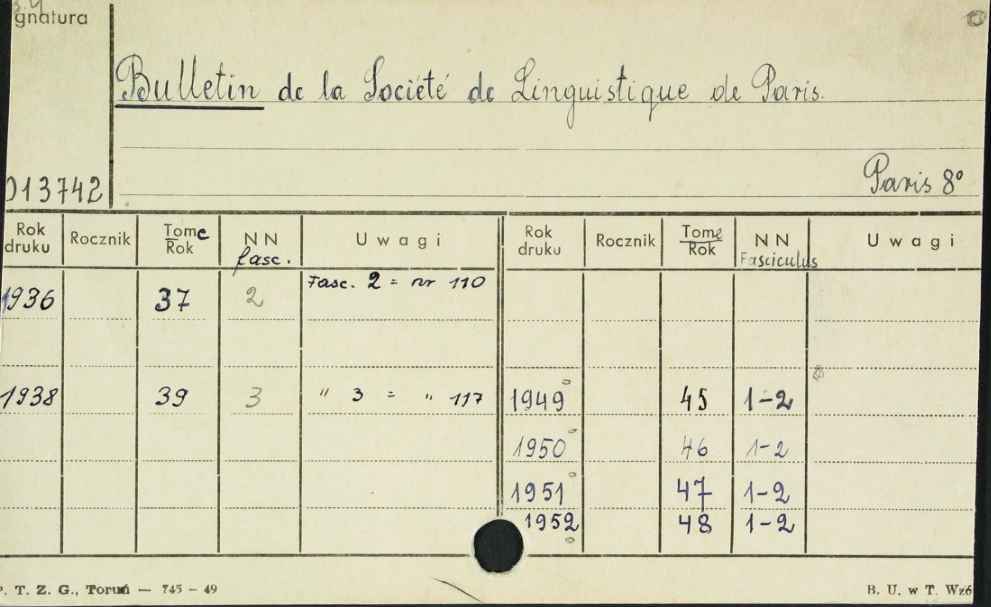 gnatura
Bulletin de la Société de Linguistique de Paris.
013742
Paris 8°
Rok druku Rocznik Tome Rok NN fasc. Uwagi Rok druku Rocznik Tome Rok NN Fasciculus Uwagi
1936 37 2 Fasc. 2 = nr 110
1938 39 3 " 3 = " 117 1949 45 1-2
1950 46 1-2
1951 47 1-2
1952 48 1-2
P. T. Z. G., Toruń — 745 — 49 B. U. w T. Wzó